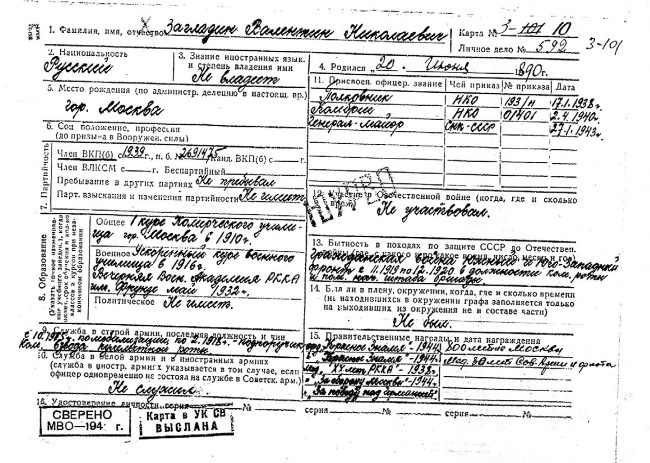 1. Фамилия, имя, отчество Загладин Валентин Николаевич
Карта № 3-101 10
Личное дело № 592
3-101
2. Национальность
Русский
3. Знание иностранных язык. и степень владения ими
Не владеет
4. Родился "20" Июня 1890г.
5. Место рождения (по администр. делению в настоящ. вр.)
гор. Москва
6. Соц положение, профессия
(до призыва в Вооружен. силы)
7. Партийность
Член ВКП(б) 1939г., п. б. № 2691475 Канд. ВКП(б) с — г.
Член ВЛКСМ с — г. Беспартийный
Пребывание в других партиях Не пребывал
Парт. взыскания и изменения партийности Не имеет
8. Образование
(Указать точное наименова-
ние учебного заведен., когда
Общее 1 курс Комерческого учили-
ща гор. Москва в 1910г.
Военное Ускоренный курс военного
училища в 1916г.
Воен. Академия РККА
им. Фрунзе май 1932г.
Политическое Не имеет.
9. Служба в старой армии, последняя должность и чин
по мобилизации по 2.1918г. Подпоручик
10. Служба в белой армии и в иностранных армиях
(служба в иностр. армиях указывается в том случае, если
офицер одновременно не состоял на службе в Советск. арм.)
Не служил.
11. Присвоен. офицер. звание Чей приказ № приказа Дата
Полковник НКО 193/н 17.1.1938г.
Комбриг НКО 01401 2.4.1940г.
Генерал-майор СНК-СССР — 27.1.1943г.
УМЕР
12. Участие в Отечественной войне (когда, где и сколько
время)
Не участвовал.
13. Бытность в походах по защите СССР до Отечествен.
Гражданская
Юго-Западный
с 11.1919 по 12.1920 в должности ком. роты
и пом. нач. штаба бригады.
14. Был ли в плену, окружении, когда, где и сколько времени
(на находившихся в окружении графа заполняется только
на выходивших из окружения не в составе части)
Не был.
15. Правительственные награды и дата награждения
"Красное Знамя" - 1944г.
800 летие Москвы
"Красное Знамя" - 1944г.
Мед. 30 лет Сов. Армии и флота
мед. "XX лет РККА" - 1938г.
"За оборону Москвы" - 1944г.
"За победу над Германией"
16. Удостоверение личности серия № серия № серия №
СВЕРЕНО
МВО—194 г.
Карта в УК СВ
ВЫСЛАНА